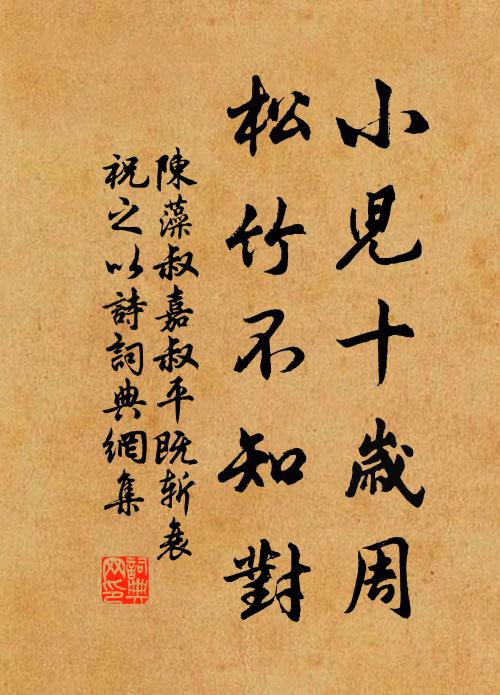 小兒十歲周
松竹不知對
陳藻叔嘉叔平既斬衰
祝之以詩詞典網集
詞典网印